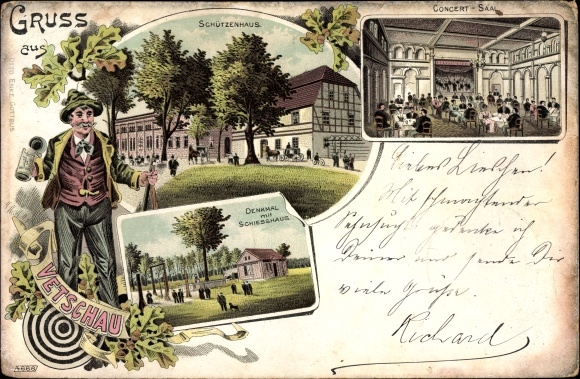 GRUSS
aus
SCHÜTZENHAUS.
CONCERT-SAAL
DENKMAL
mit
SCHIESSHAUS.
VETSCHAU
4666
Liebes Lieschen!
Mit schmachtender
Sehnsucht gedenke ich
Deiner und sende Dir
viele Grüße.
Richard